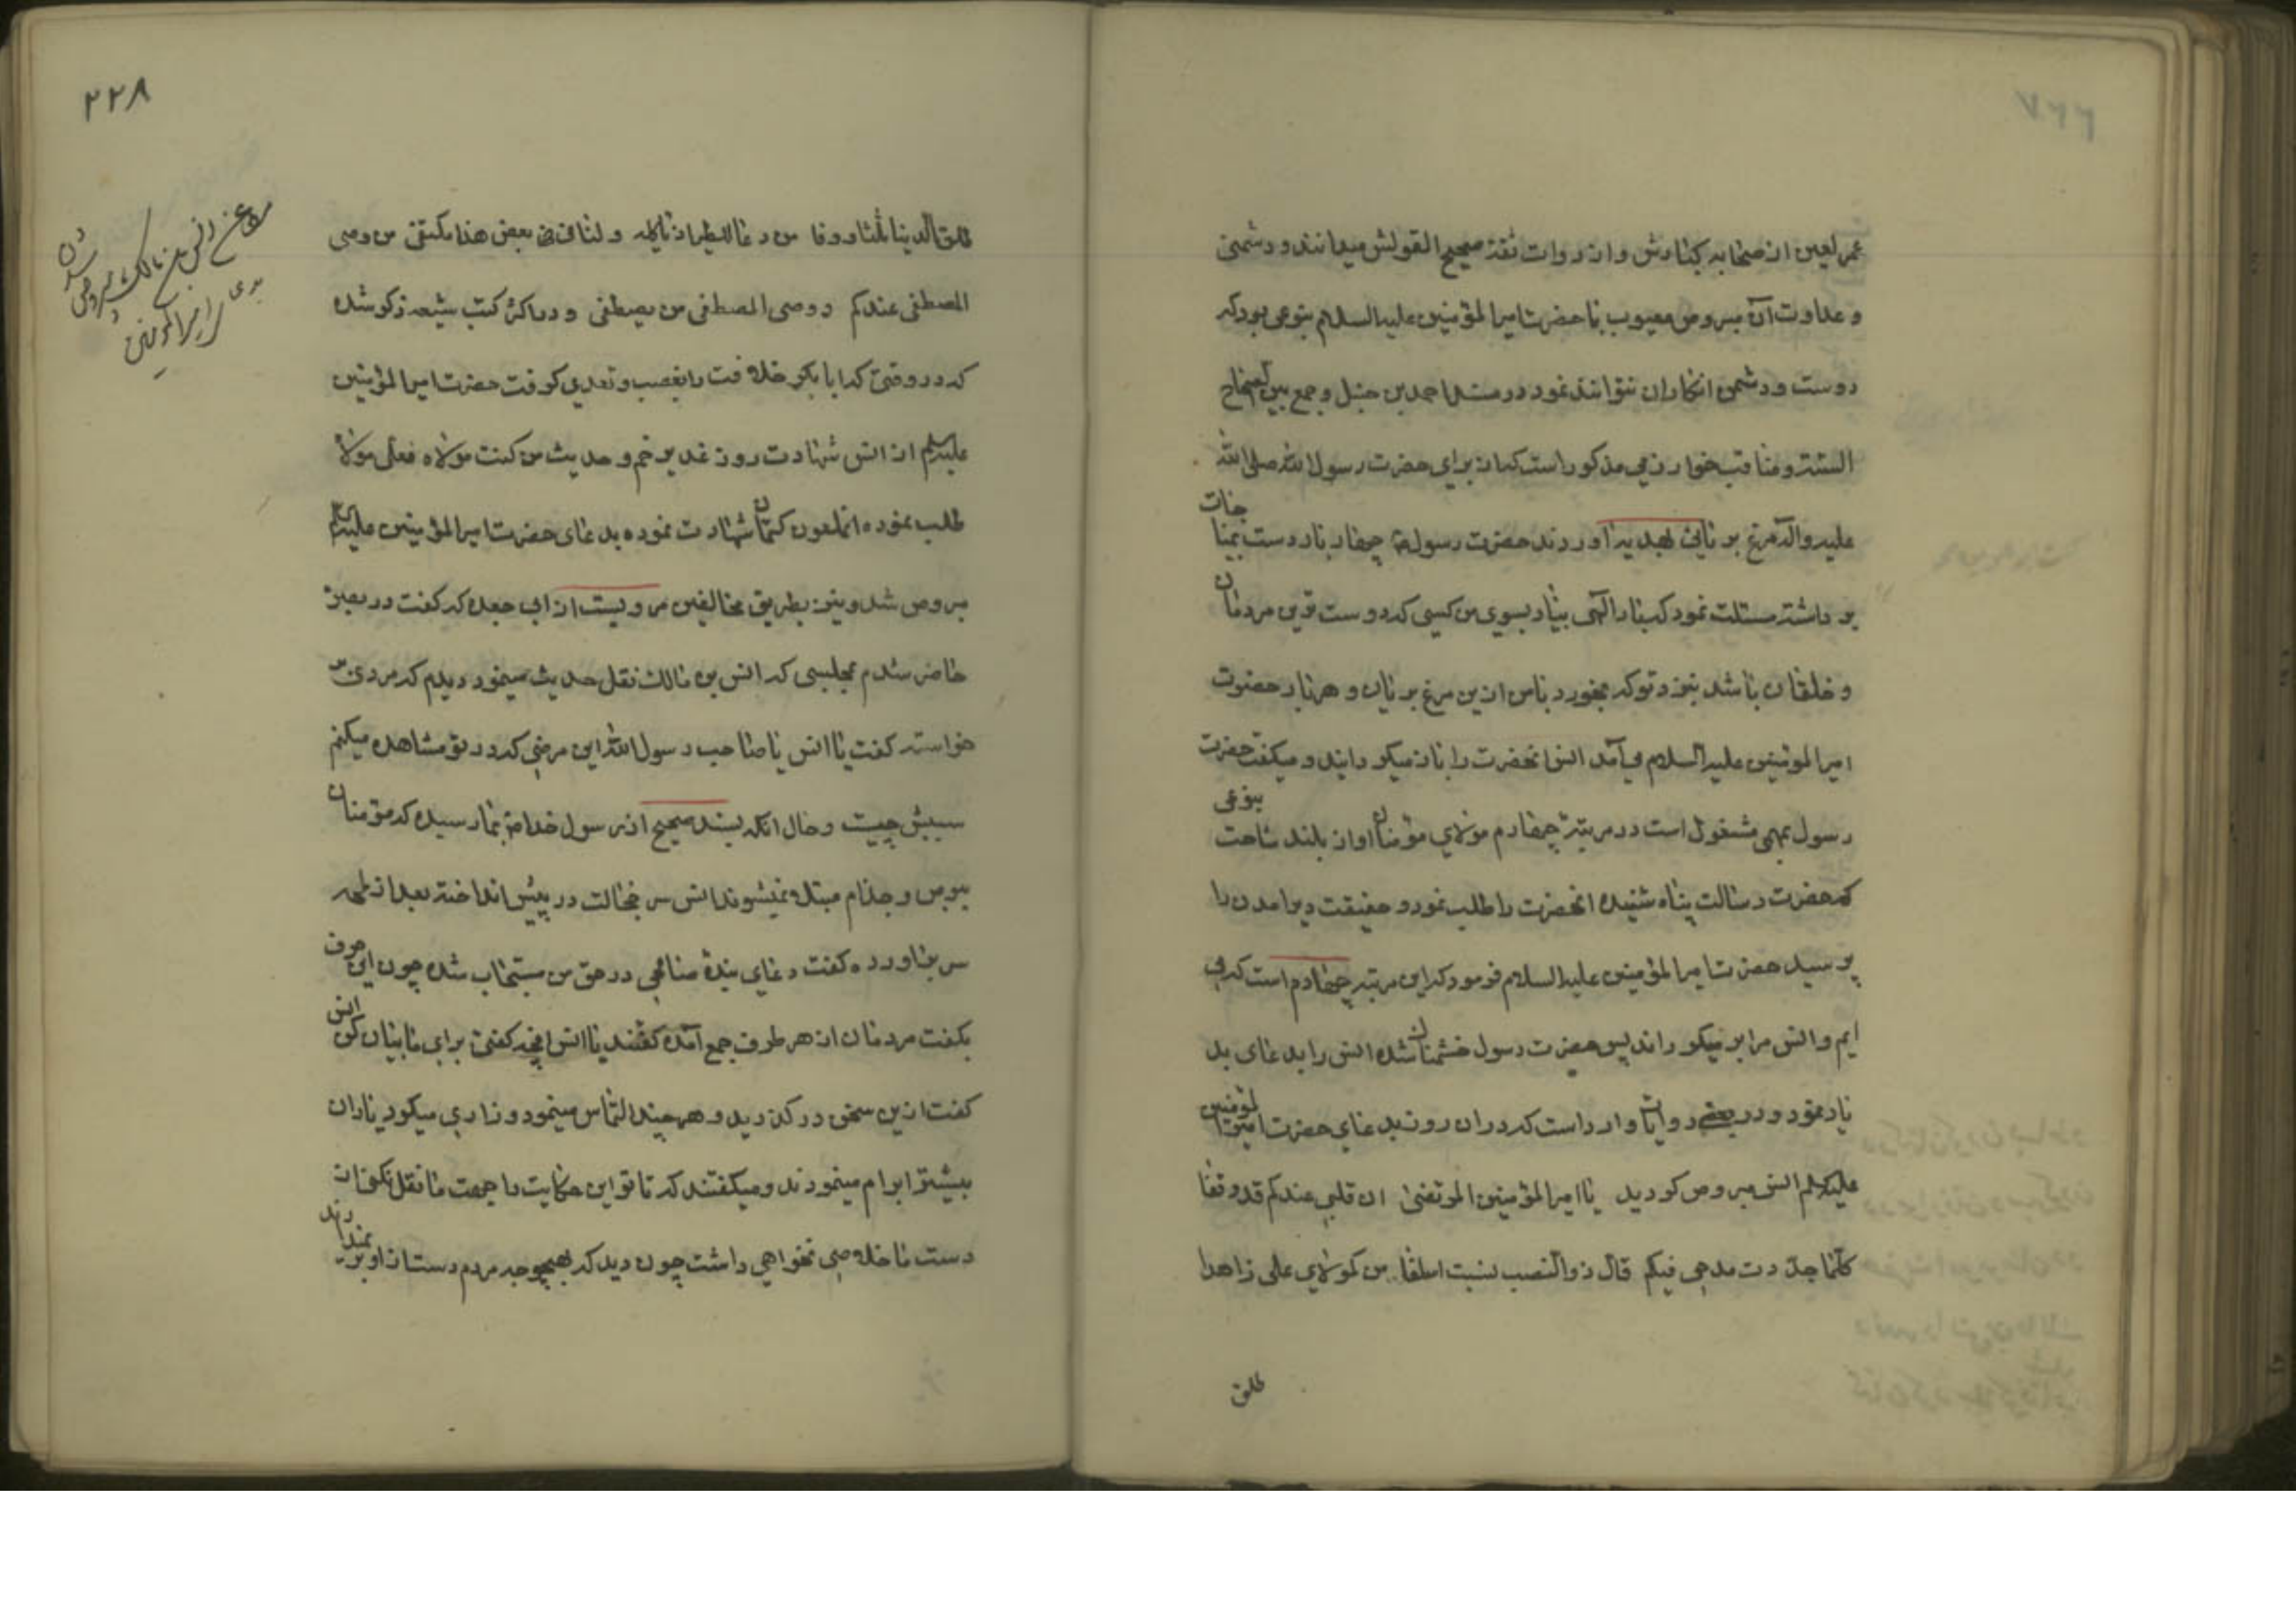 عمر لعین از صحابه کبارش و از روات ثقه صحیح القولش میدانند و دشمنی
و عداوت آن مبروص معیوب با حضرت امیر المؤمنین علیه السلام بنوعی بود که
دوست و دشمن انکار ان نتوانند نمود در مسند احمد بن حنبل و جمع بین الصحاح
السته و مناقب خوارزمی مذکور است که از برای حضرت رسول الله صلی الله
علیه و آله مرغ بریانی بهدیه آوردند حضرت رسول چهار بار دست بمناجات
برداشته مسئلت نمود که بار الهی بیار بسوی من کسی که دوست ترین مردمان
و خلقان باشد بنزد تو که بخورد با من ازین مرغ بریان و هر بار حضرت
امیر المومنین علیه السلام می آمد انس انحضرت را باز میکردانید و میکفت حضرت
رسول بمهمی مشغول است در مرتبه چهارم مولای مؤمنان اواز بلند ساخت بنوعی
که حضرت رسالت پناه شنیده انحضرت را طلب نمود و حقیقت دیر امدن را
پرسید حضرت امیر المؤمنین علیه السلام فرمود که این مرتبه چهارم است که می
ایم و انس مرا بر میکرداند پس حضرت رسول خشمناک شده انس را بدعای بد
یاد نمود و در بعضی روایات وارد است که در ان روز بدعای حضرت امیر المؤمنین
علیه السلم انس مبروص کردید یا امیر المؤمنین المرتضی ان قلبی عندکم قد وقفا
کلما جددت مدحی فیکم قال ذو النصب لنسبت اسلفا من کمولای علی زاهدا
طلق
۲۲۷
۲۲۸
طلق الدنیا ثلثا و وفا من دعا للطیر ان یاکله و لنا فی بعض هذا مکتفی من وصی
المصطفی عندکم و وصی المصطفی من یصطفی و در اکثر کتب شیعه ذکر شده
که در وقتی که ابا بکر خلافت را بغصب و تعدی کرفت حضرت امیر المؤمنین
علیه السلم از انس شهادت روز غدیر خم و حدیث من کنت مولاه فعلی مولاه
طلب نموده انملعون کتمان شهادت نموده بدعای حضرت امیر المؤمنین علیه السلم
مبروص شد و نیز بطریق مخالفین مرویست از ابی جعده که کفت در بصره
حاضر شدم بمجلسی که انس بن مالک نقل حدیث مینمود دیدم که مردی بر
خواسته کفت یا انس یا صاحب رسول الله این مرضی که در تو مشاهده میکنم
سببش چیست و حال انکه بسند صحیح از رسول خدا بما رسیده که مؤمنان
ببرص و جذام مبتلا نمیشوند انس سر خجالت در پیش انداخته بعد از لمحه
سر براورده کفت دعای بنده صالحی در حق من مستجاب شده چون این حرف
بکفت مردمان از هر طرف جمع آمده کفتند یا انس انچه کفتی برای ما بیان کن انس
کفت ازین سخن در کذرید و هر چند التماس مینمود و زاری میکرد یاران
بیشتر ابرام مینمودند و میکفتند که تا تو این حکایت را جهت ما نقل نکنی از
دست ما خلاصی نخواهی داشت چون دید که بهیچوجه مردم دست از او بر نمیدارند